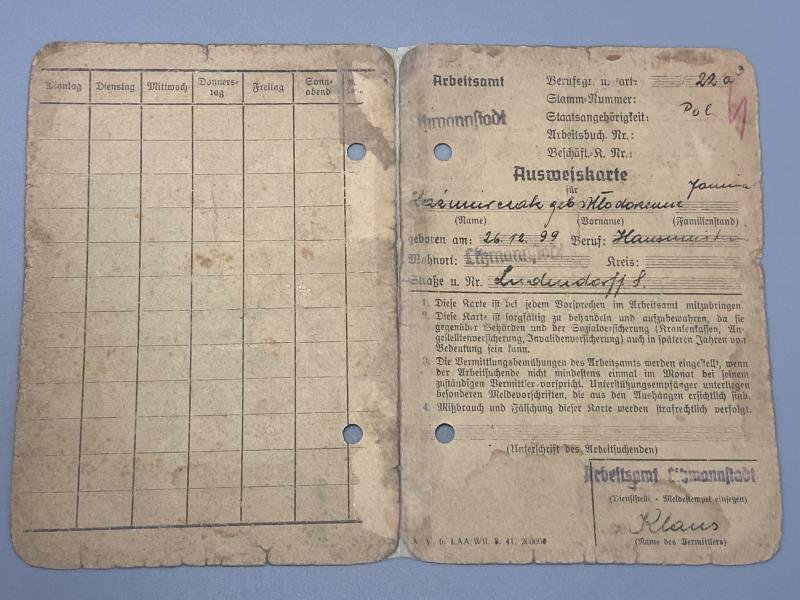 Montag Dienstag Mittwoch Donners-tag Freitag Sonn-abend
Arbeitsamt
Litzmannstadt
Berufsgr. u. -art: 22 a
Stamm-Nummer:
Staatsangehörigkeit: Pol.
Arbeitsbuch. Nr.:
Beschäft.-K. Nr.:
Ausweiskarte
für
geb. Janina
(Name) (Vorname) (Familienstand)
geboren am: 26.12.99 Beruf:
Wohnort: Litzmannstadt Kreis:
Straße u. Nr. Ludendorff 8.
1. Diese Karte ist bei jedem Vorsprechen im Arbeitsamt mitzubringen.
2. Diese Karte ist sorgfältig zu behandeln und aufzubewahren, da sie
gegenüber Behörden und der Sozialversicherung (Krankenkassen, An-
gestelltenversicherung, Invalidenversicherung) auch in späteren Jahren von
Bedeutung sein kann.
3. Die Vermittlungsbemühungen des Arbeitsamts werden eingestellt, wenn
der Arbeitsuchende nicht mindestens einmal im Monat bei seinem
zuständigen Vermittler vorspricht. Unterstützungsempfänger unterliegen
besonderen Meldevorschriften, die aus den Aushängen ersichtlich sind.
4. Mißbrauch und Fälschung dieser Karte werden strafrechtlich verfolgt.
(Unterschrift des Arbeitsuchenden)
Arbeitsamt Litzmannstadt
(Dienststelle - Meldestempel einsetzen)
Klaus
(Name des Vermittlers)
A. V. 6. LAA/Wil. 41. 20000